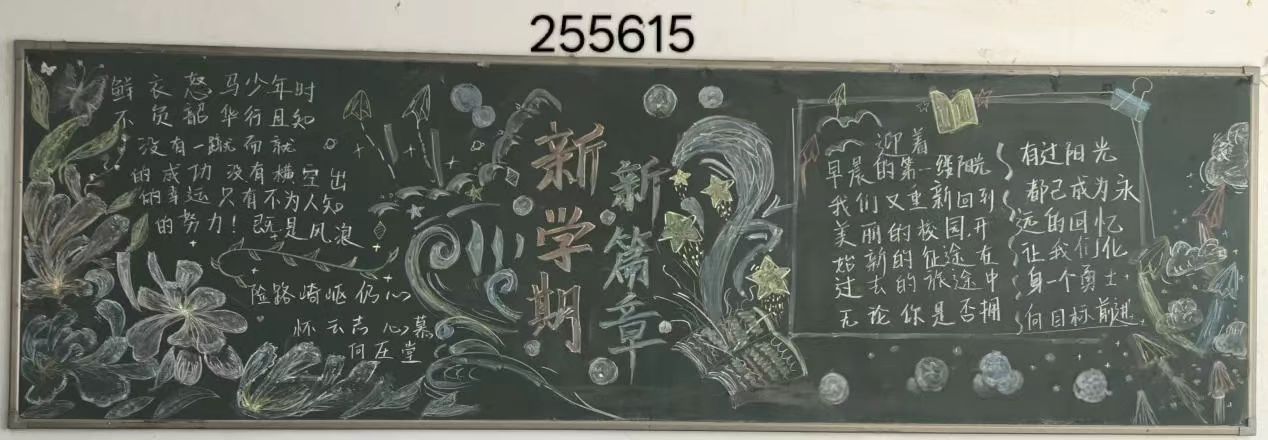 255615
鲜衣怒马少年时
不负韶华行且知
没有一蹴而就
的成功 没有横空出
的幸运 只有不为人知
的努力！既是风浪
险路崎岖仍心
怀云志心慕
何在堂
新学期
新篇章
迎着
早晨的第一缕阳光
我们又重新回到
美丽的校园,开
始新的征途 在
过去的旅途中
无论你是否拥
有过阳光
都已成为永
远的回忆
让我们化
身一个勇士
向目标前进